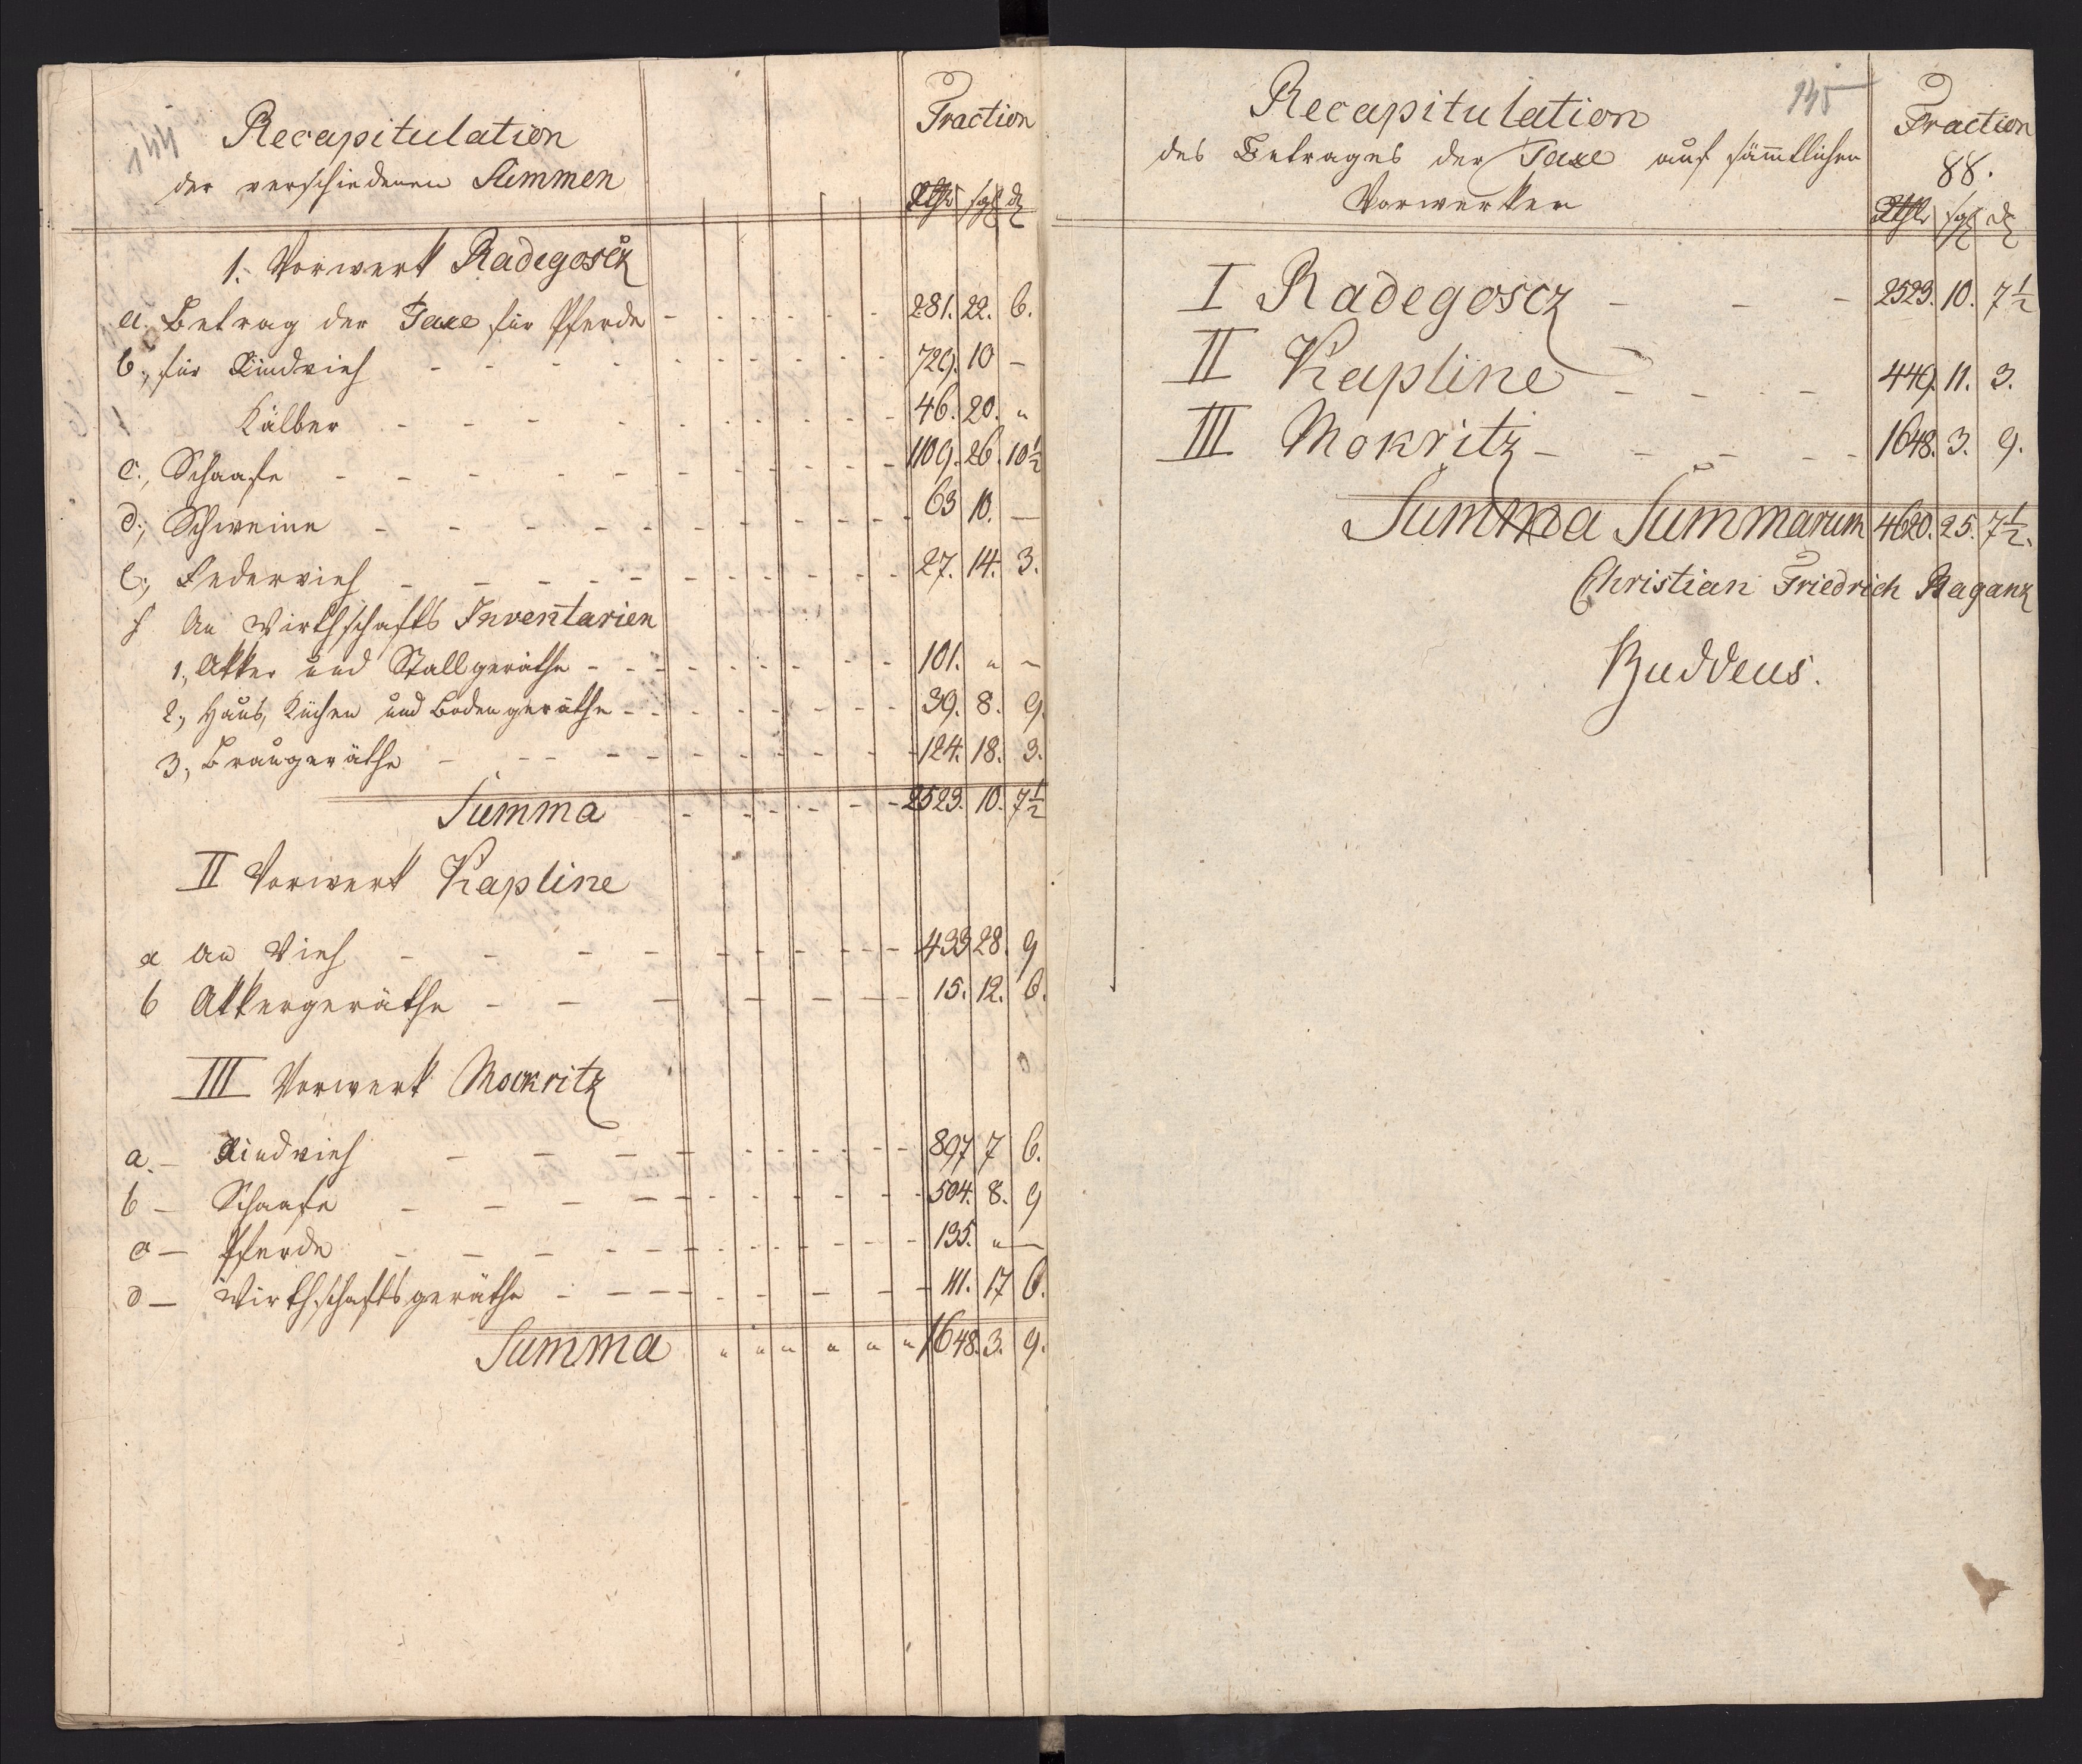 Recapitulation
der verschiedenen Summen
Fraction
Rthlr sgl d
1. Vorwerk Radegoscz
a. Betrag der Taxe für Pferde 281. 22. 6.
b., für Rindvieh 729. 10 –
Kälber 46. 20. "
c., Schaafe 1109. 26. 10½
d., Schweine 63 10. –
e., Federvieh 27. 14. 3.
f An Wirthschafts Inventarien
1., Akker und Stallgeräthe 101. " –
2., Haus, Küchen und Bodengeräthe 39. 8. 9.
3., Braugeräthe 124. 18. 3.
Summa 2523. 10. 7½
II Vorwerk Kapline
a An Vieh 433 28. 9
b Akkergeräthe 15. 12. 6.
III Vorwerk Mockritz
a. – Rindvieh 897 7 6.
b – Schaafe 504. 8. 9
c – Pferde 135. " –
d – Wirthschaftsgeräthe 111. 17 6.
Summa " " " " " " 1648. 3. 9.
145
Recapitulation
des Betrages der Taxe auf sämtlichen
Vorwerker
Fraction
88.
Rthlr sgl d
I Radegoscz 2523. 10. 7½
II Kapline 449. 11. 3.
III Mokritz 1648. 3. 9.
Summa Summarum 4620. 25. 7½.
Christian Friedrich Raganz
Buddeus.